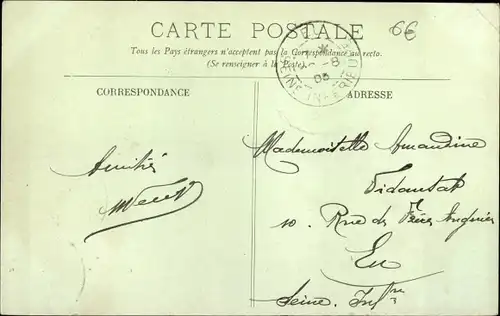 CARTE POSTALE
6€
Tous les Pays étrangers n'acceptent pas la Correspondance au recto.
(Se renseigner à la Poste)
SEINE INFERIEURE
CORRESPONDANCE
ADRESSE
Amitiés
Mademoiselle Amandine
10. Rue des Frères Anguier
Eu
Seine. Infre